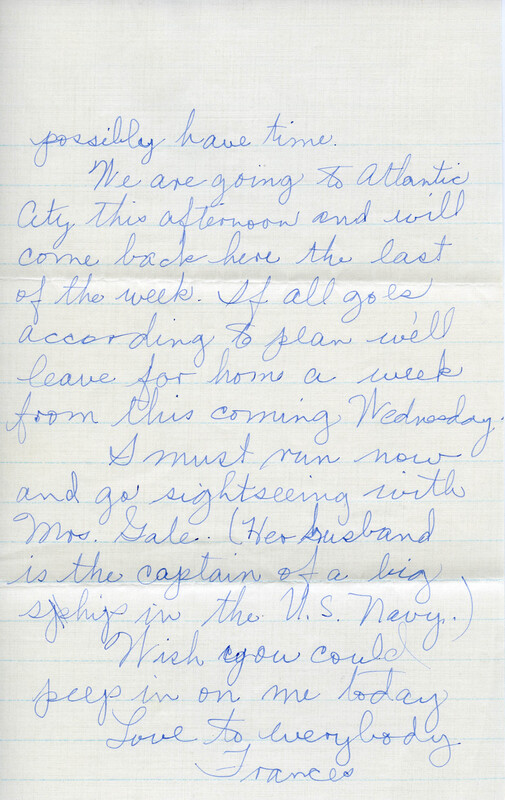 possibly have time.
We are going to Atlantic
City this afternoon and will
come back here the last
of the week. If all goes
according to plan we'll
leave for home a week
from this coming Wednesday.
I must run now
and go sightseeing with
Mrs. Gale. (Her husband
is the captain of a big
ship in the U.S. Navy.)
Wish you could
peep in on me today
Love to everybody
Frances